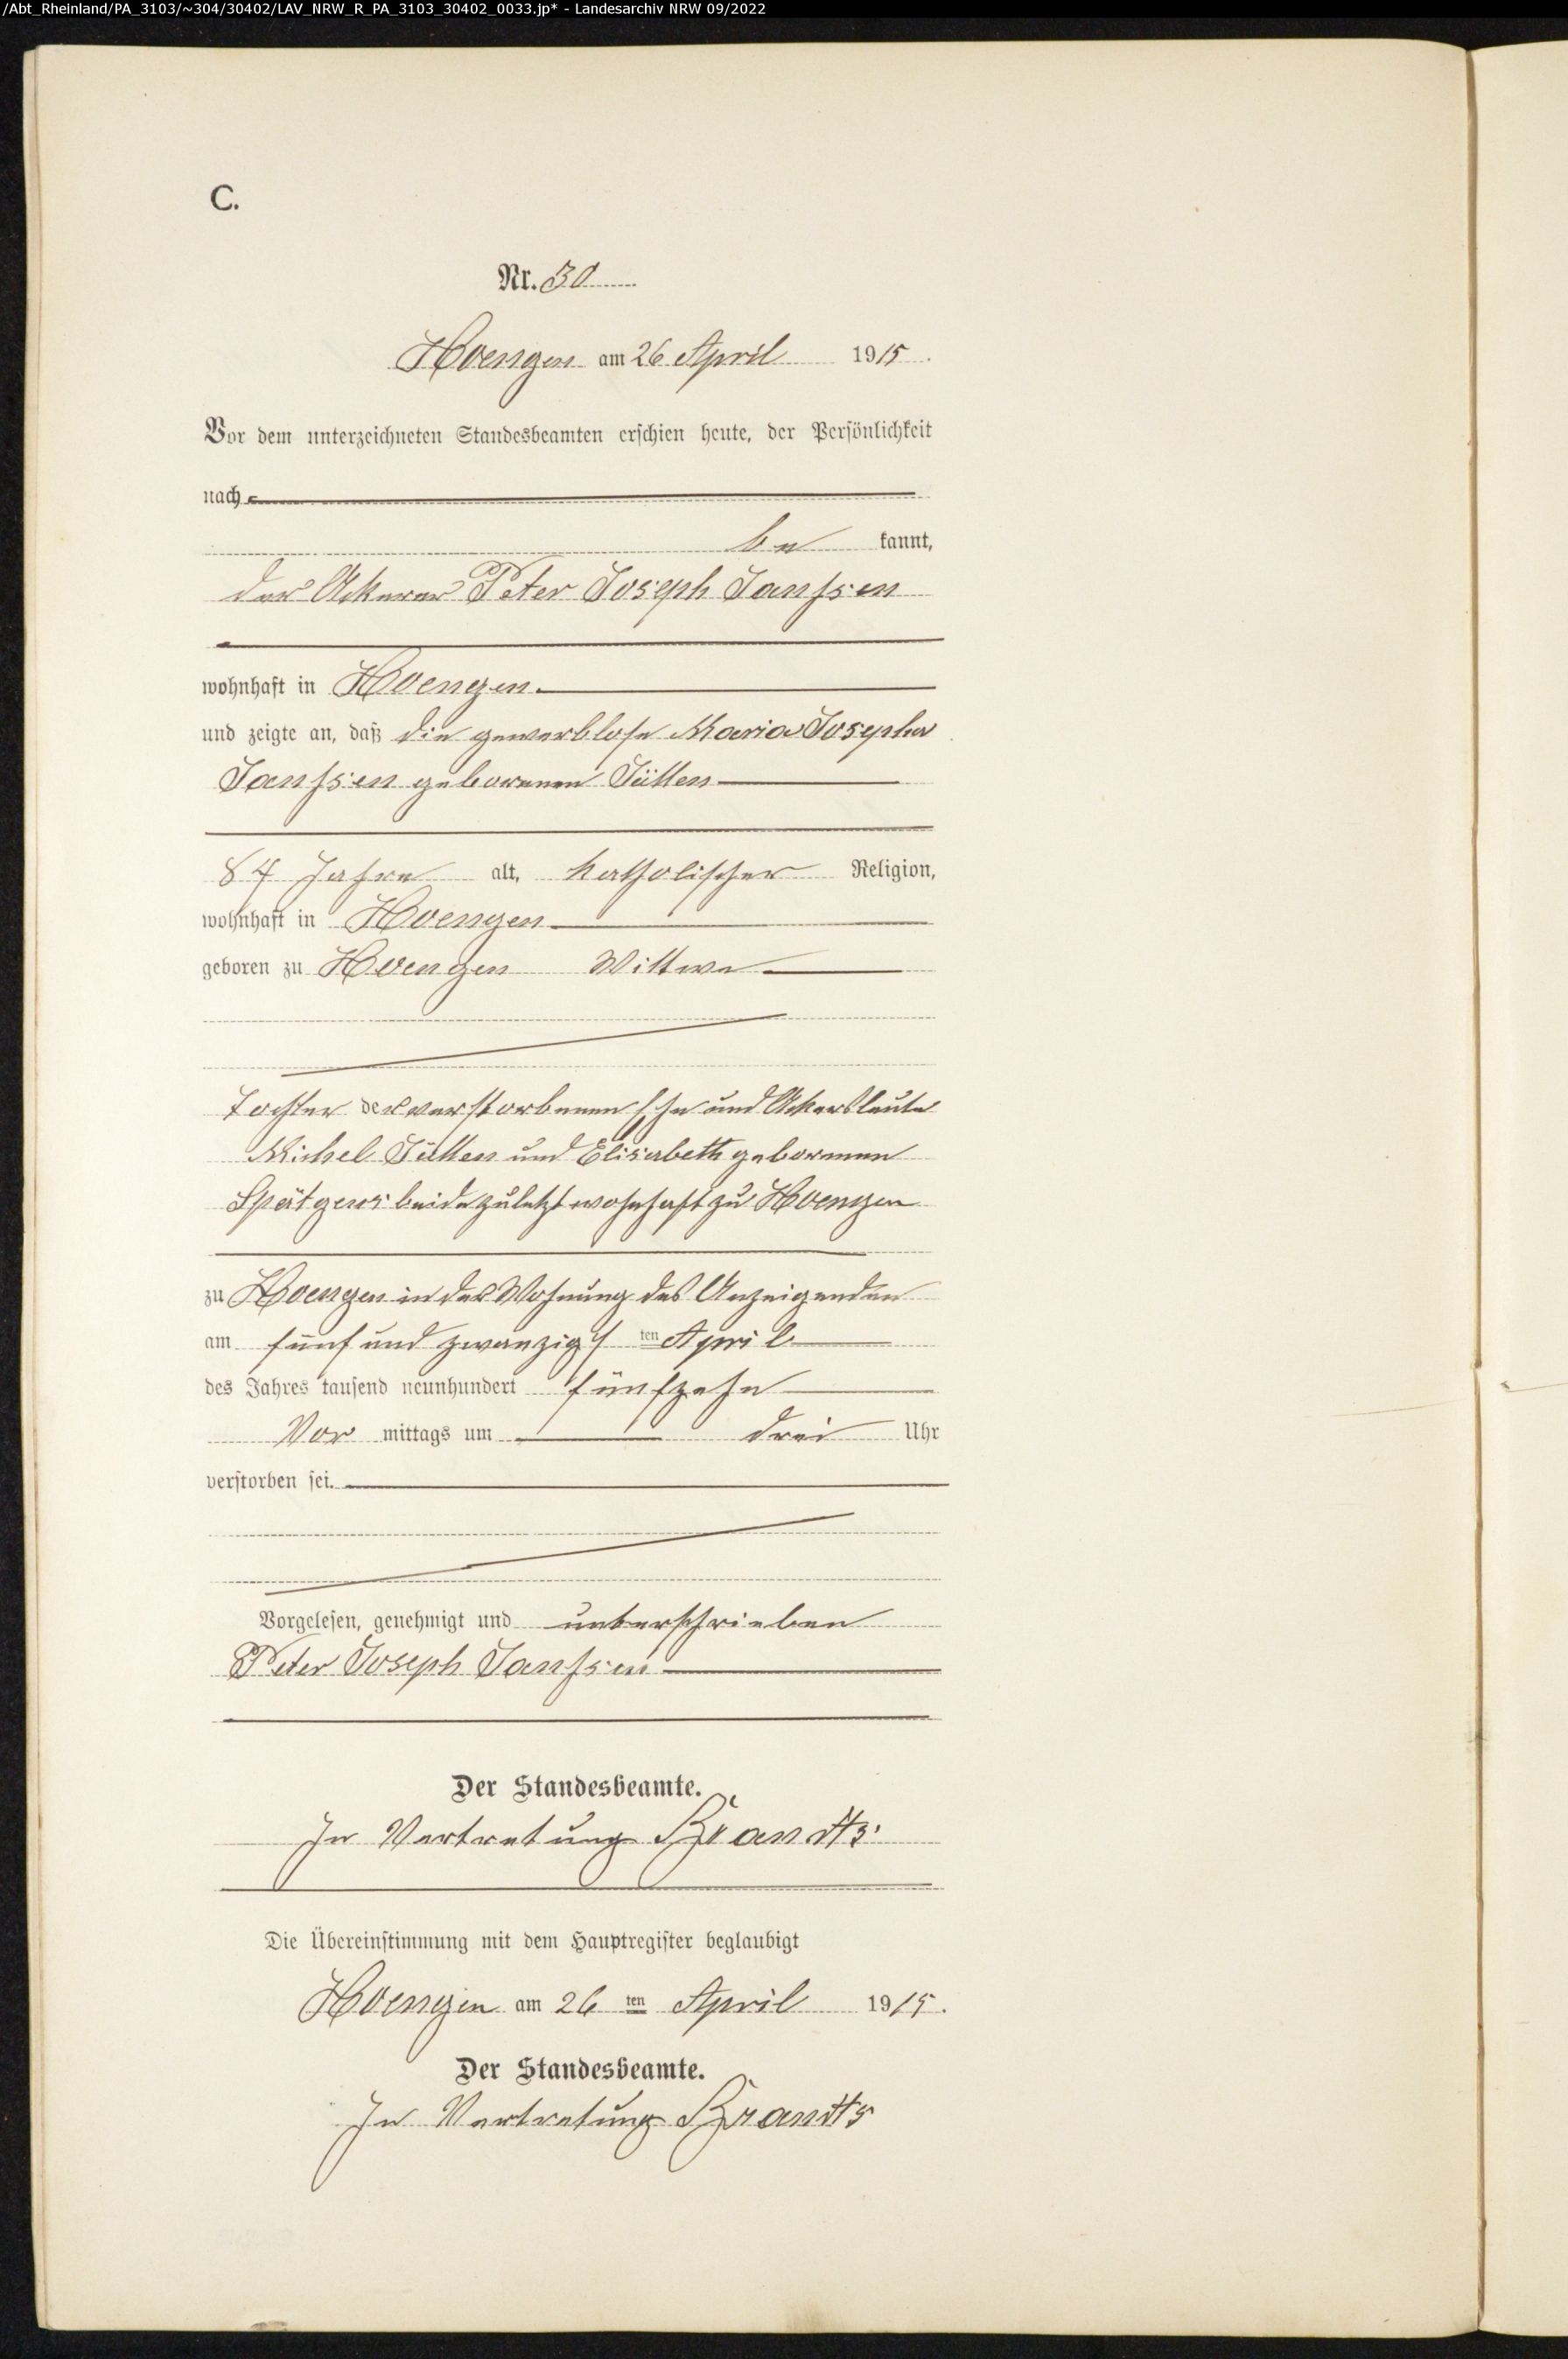 /Abt_Rheinland/PA_3103/~304/30402/LAV_NRW_R_PA_3103_30402_0033.jp* - Landesarchiv NRW 09/2022
C.
Nr. 30
Hoengen am 26 April 1915.
Vor dem unterzeichneten Standesbeamten erschien heute, der Persönlichkeit
nach
be kannt,
der Ackerer Peter Joseph Janssen
wohnhaft in Hoengen.
und zeigte an, daß die gewerblose Maria Josepha
Janssen geborenen Jütten
84 Jahre alt, katholischer Religion,
wohnhaft in Hoengen
geboren zu Hoengen Wittwe
Tochter der verstorbenen Ehe und Ackersleute
Michel Jütten und Elisabeth geborenen
Spätgens beide zuletzt wohnhaft zu Hoengen
zu Hoengen in der Wohnung des Anzeigenden
am fünf und zwanzigs ten April
des Jahres tausend neunhundert fünfzehn
Vor mittags um drei Uhr
verstorben sei.
Vorgelesen, genehmigt und unterschrieben
Peter Joseph Janssen
Der Standesbeamte.
In Vertretung Brandts
Die Übereinstimmung mit dem Hauptregister beglaubigt
Hoengen am 26 ten April 1915.
Der Standesbeamte.
In Vertretung Brandts